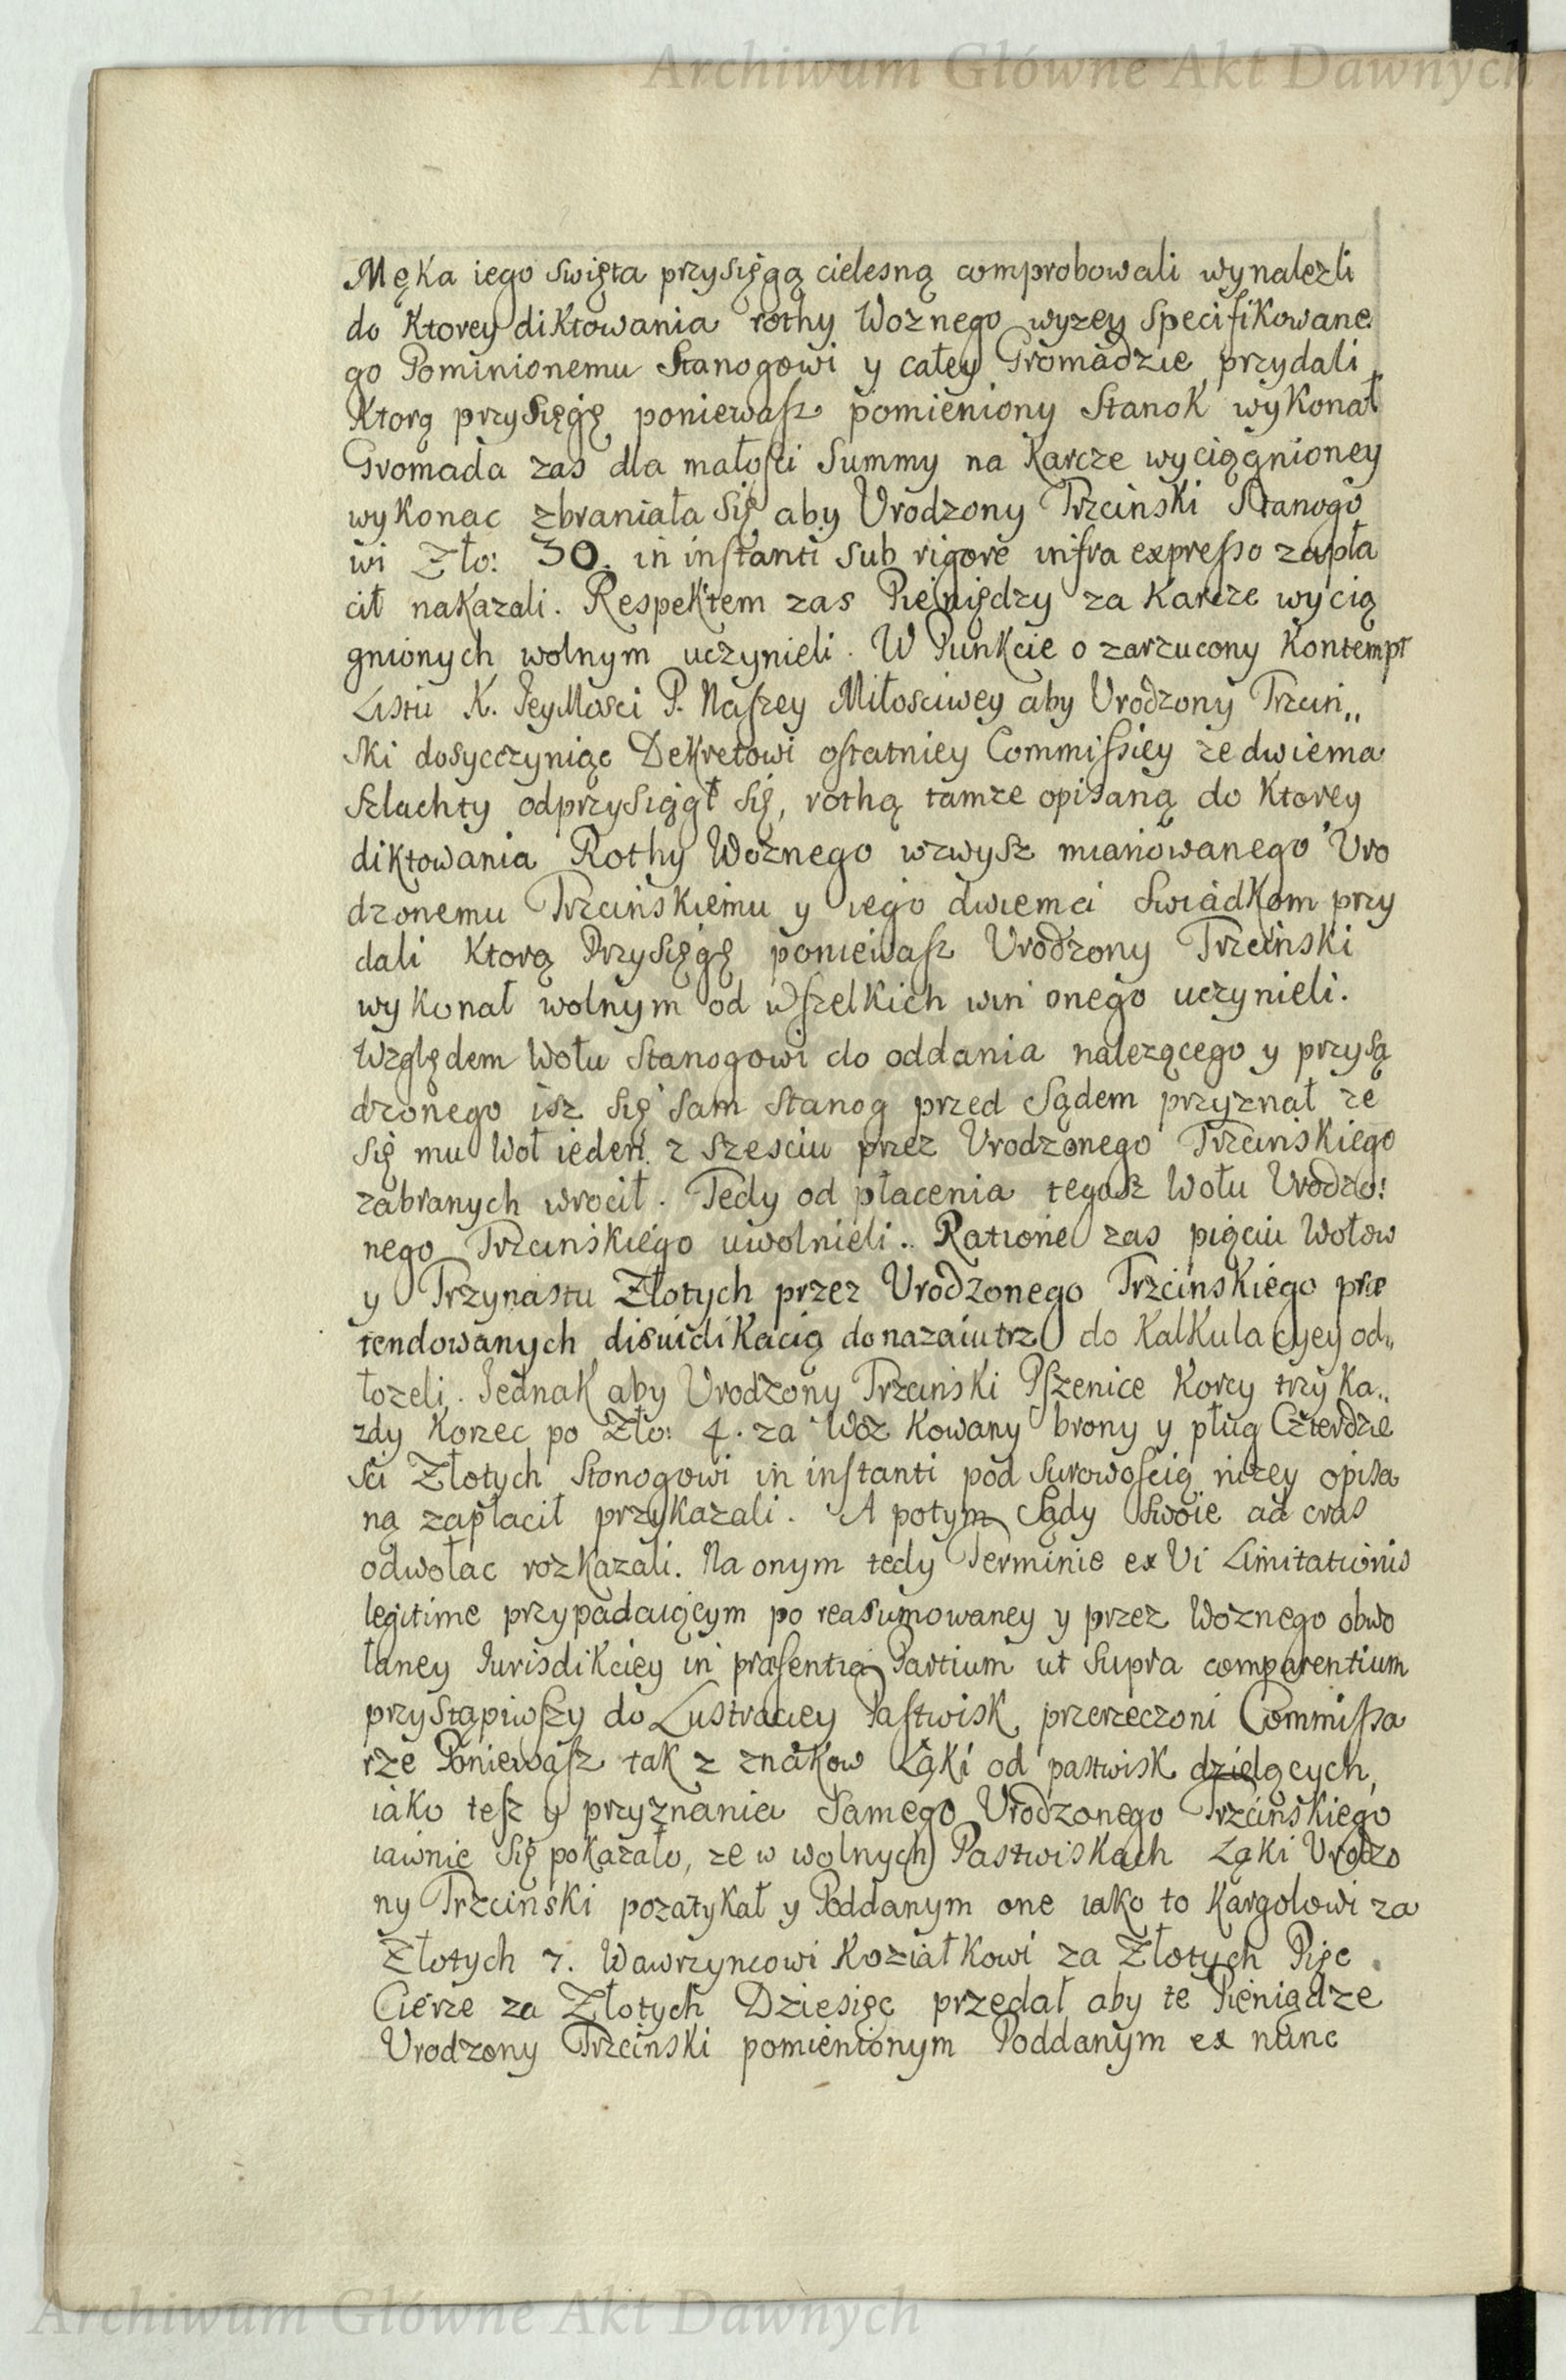 Archiwum Główne Akt Dawnych
Męka iego swięta przysięgą cielesną comprobowali wynalezli
do Ktorey diktowania rothy Woznego wyzey specifikowane
go Pominionemu Stanogowi y całey Gromadzie przydali
Ktorą przysięgę poniewasz pomieniony Stanok wykonał
Gromada zas dla małosci Summy na Karcze wyciągnioney
wykonac zbraniała się aby Urodzony Trzcinski Stanogo
wi Zło: 30. in instanti sub rigore infra expresso zapła
cił nakazali. Respektem zas Pieniędzy za Karcze wycią
gnionych wolnym uczynieli. W Punkcie o zarzucony Kontempt
Listu K. JeyMosci P. Naszey Miłosciwey aby Urodzony Trzcin„
ski dosycczyniąc Dekretowi ostatniey Commissiey ze dwiema
Szlachty odprzysiągł się, rothą tamze opisaną do Ktorey
diktowania Rothy Woznego wzwysz mianowanego Uro
dzonemu Trzcinskiemu y iego dwiema Swiadkom przy
dali Ktorą Przysięgę poniewasz Urodzony Trzcinski
wykonał wolnym od wszelkich win onego uczynieli.
Względem Wołu Stanogowi do oddania nalezącego y przysą
dzonego isz się sam Stanog przed Sądem przyznał ze
się mu Woł ieden z szesciu przez Urodzonego Trzcinskiego
zabranych wrocił. Tedy od płacenia tegosz Wołu Urodzo:
nego Trzcinskiego uwolnieli.. Ratione zas pięciu Wołow
y Trzynastu Złotych przez Urodzonego Trzcinskiego præ
tendowanych disuidikacią do nazaiutrz do Kalkulacyey od„
łozeli. Jednak aby Urodzony Trzcinski Pszenice Korcy trzy Ka„
zdy Korzec po Zło: 4. za Woz Kowany brony y pług Czterdzie
sci Złotych Stonogowi in instanti pod surowoscią nizey opisa
ną zapłacił przykazali. A potym Sądy Swoie ad cras
odwołac rozkazali. Na onym tedy Terminie ex Vi Limitationis
legitime przypadaiącym po reasumowaney y przez Woznego obwo
łaney Jurisdikciey in præsentia Partium ut supra comparentium
przystąpiwszy do Lustraciey Pastwisk przerzeczoni Commissa
rze Poniewasz tak z znakow Łąki od pastwisk dzielących,
iako tesz y przyznania Samego Urodzonego Trzcinskiego
iawnie się pokazało, ze w wolnych Pastwiskach Łąki Urodzo
ny Trzcinski pozatykał y Poddanym one iako to Kargolowi za
Złotych 7. Wawrzyncowi Koziatkowi za Złotych Pięc
Cierze za Złotych Dziesięc przedał aby te Pieniądze
Urodzony Trzcinski pomienionym Poddanym ex nunc
Archiwum Główne Akt Dawnych